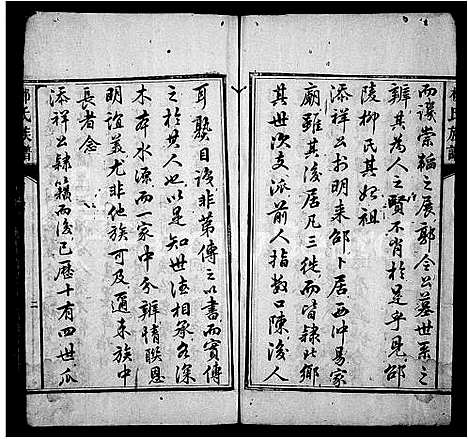 而讓崇韜之展郭令公墓世系之
辨其為人之賢不肖於是乎見邵
陵柳氏其妃祖
添祥公於明來邵卜居西沖易家
廟雖其後居凡三徙而皆隸此鄉
其世次支派前人指教口陳後人
耳熟目談非第傳之以書而實傳
之於其人也以是知世德相承各深
木本水源而一家中分辨情聯恩
明誼美尤非他族可及適來族中
長者念
添祥公隸籍而後已歷十有四世瓜
柳氏族譜
二